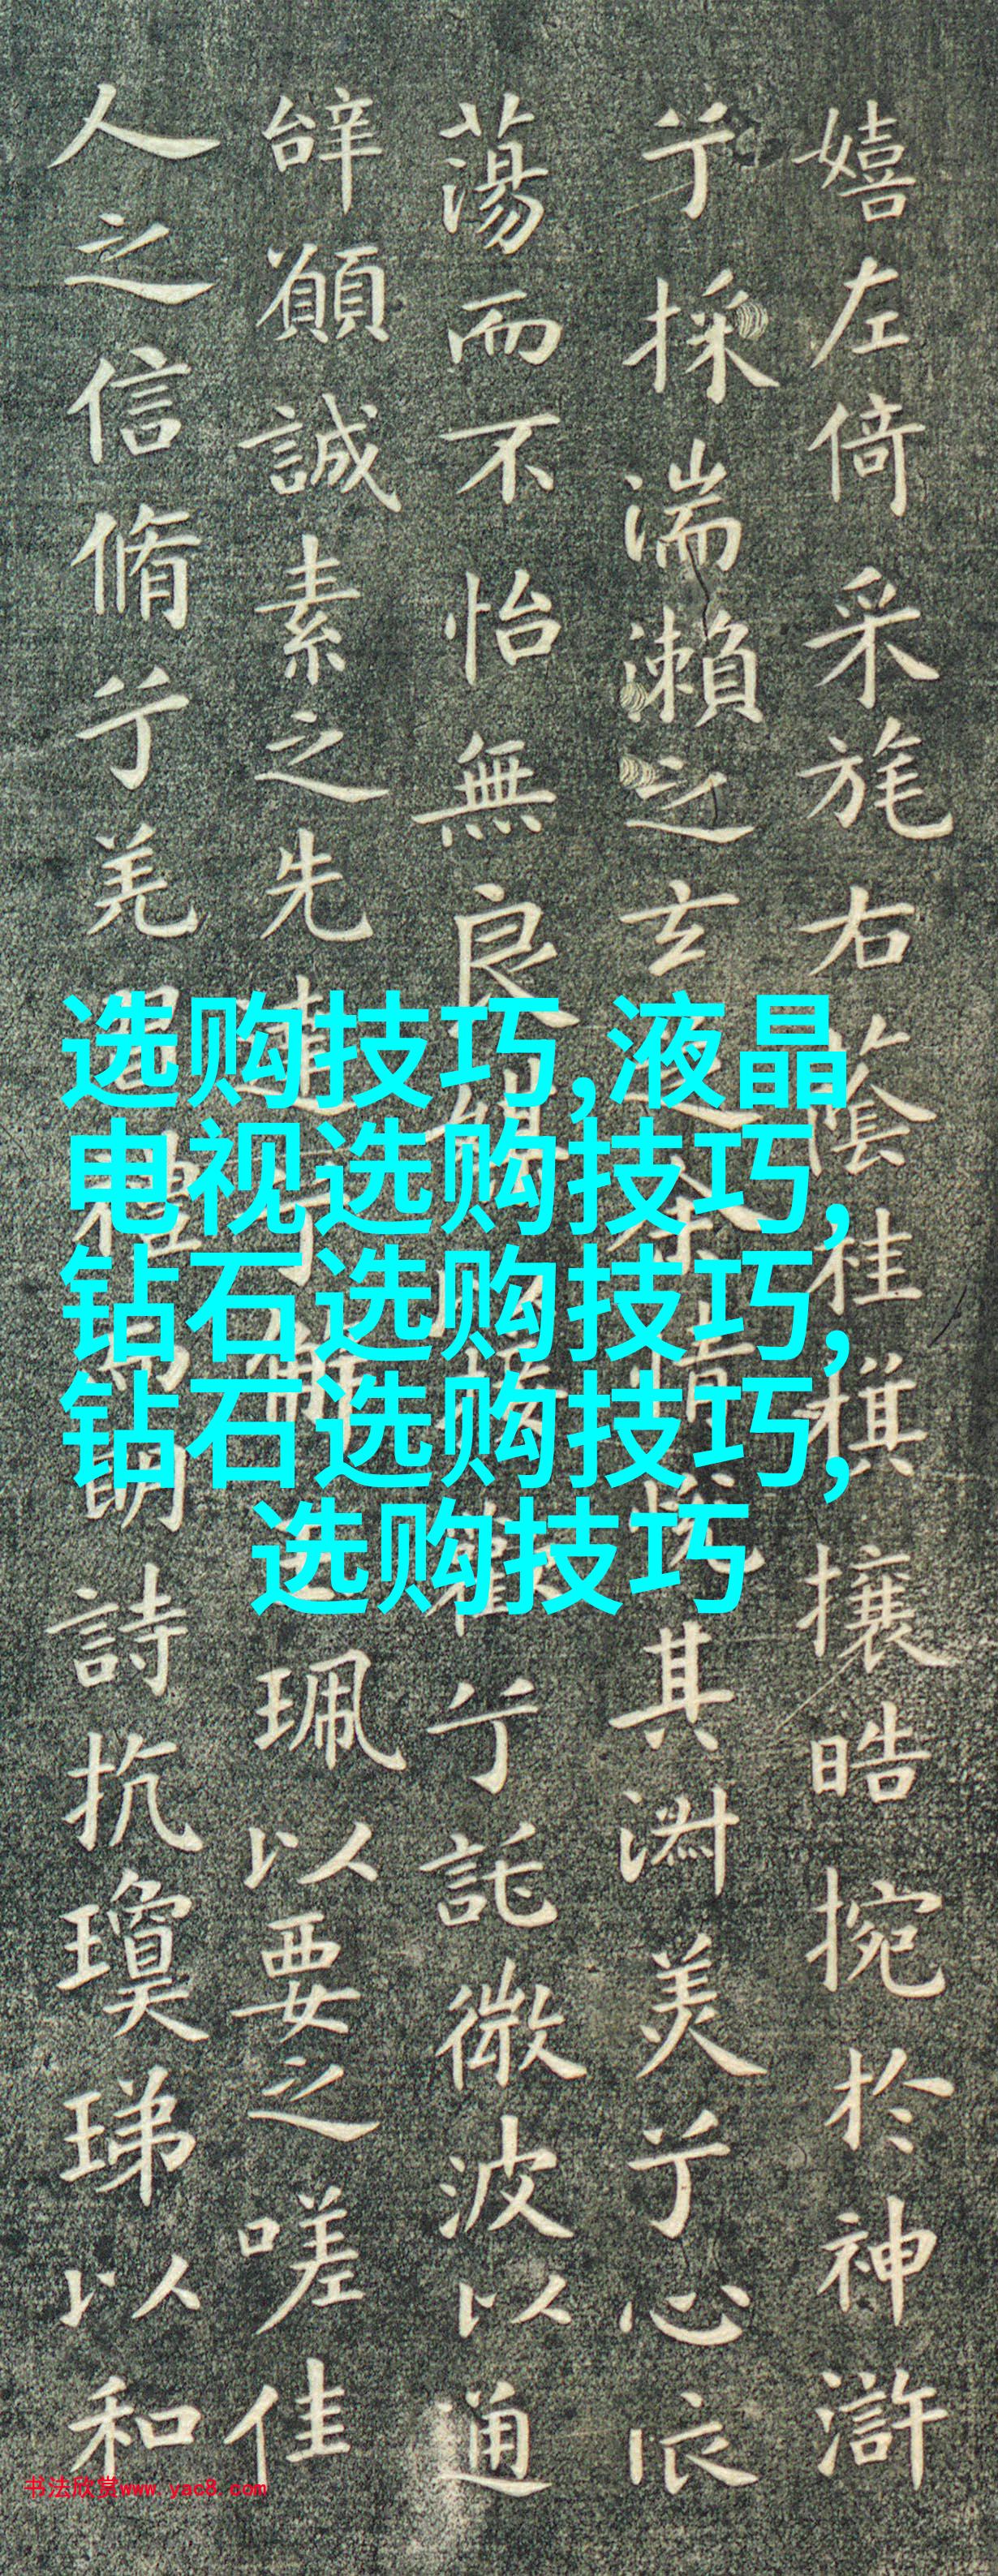 嬉左倚采旄右蔭桂旗攘皓捥於神滸
兮採湍瀨之玄芝余情悅其淵美兮心
蕩而不怡無良媒接懽兮託微波以通
辝願誠素之先達兮解珮以要之嗟佳
人之信脩兮羌習禮而明詩抗瓊珶以和
选购技巧,液晶
电视选购技巧,
钻石选购技巧,
钻石选购技巧,
选购技巧
书法欣赏www.yac8.com